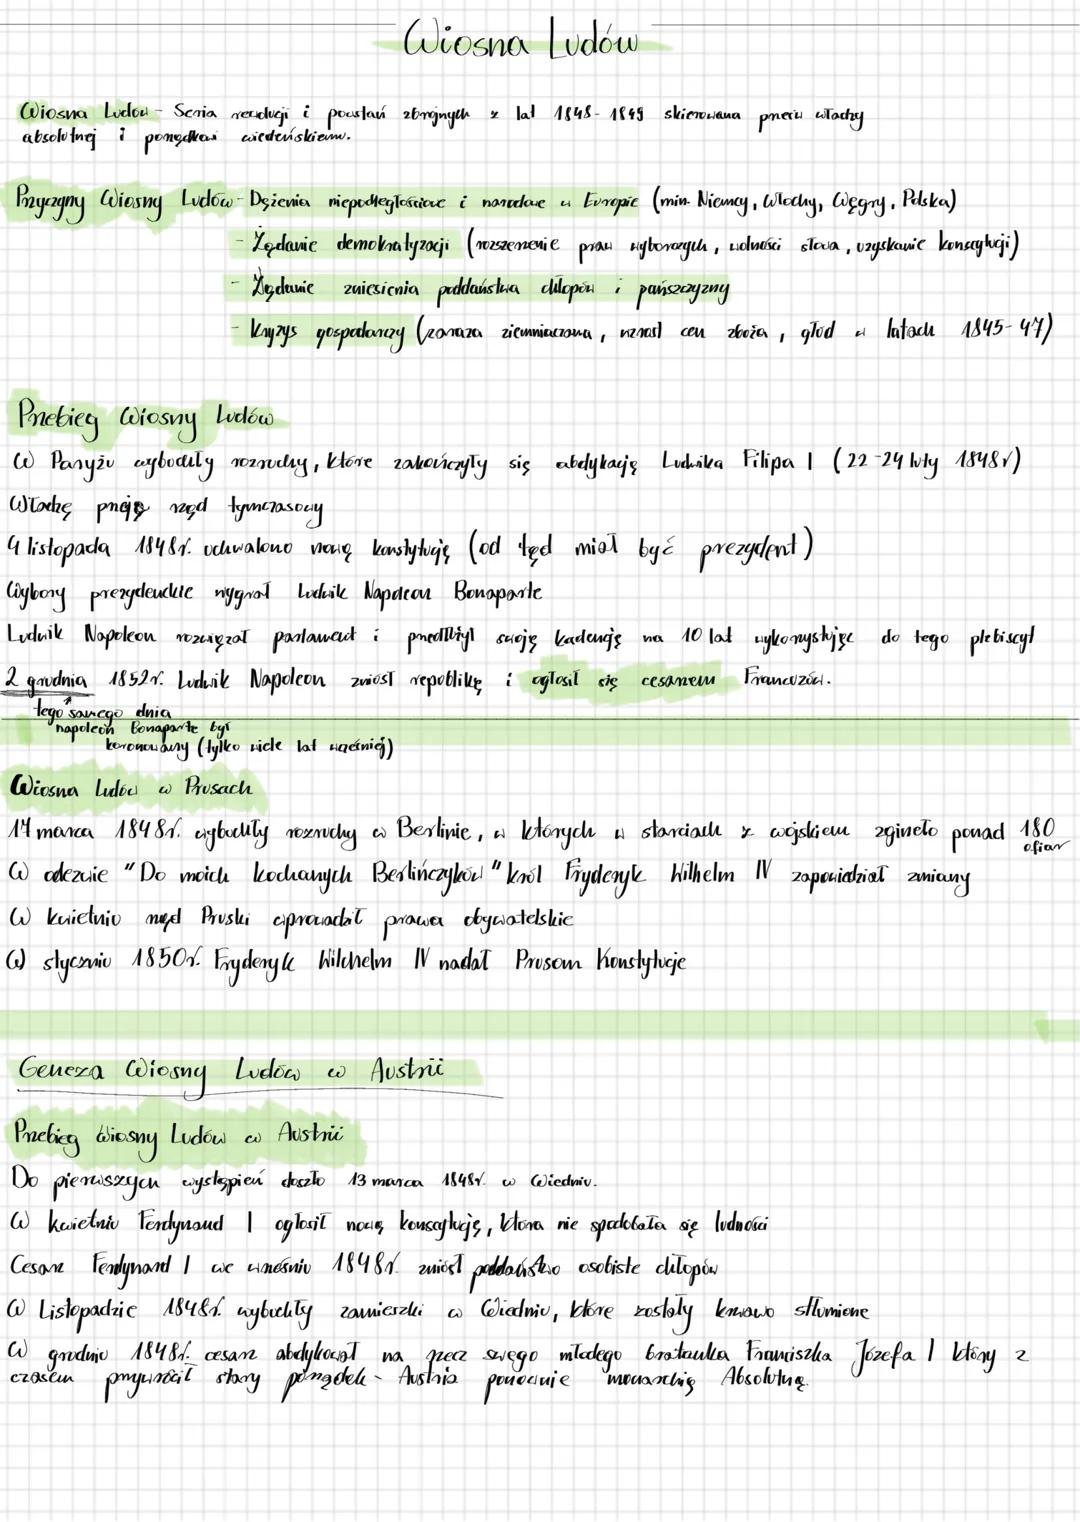 Wiosna Ludów
Wiosna Ludów - Seria rewolucji i powstań zbrojnych z lat 1848-1849 skierowana przeciw władzy
absolutnej i porządkowi wiedeńskiemu.
Przyczyny Wiosny Ludów - Dążenia niepodległościowe i narodowe w Europie (min. Niemcy, Włochy, Węgry, Polska)
- Żądanie demokratyzacji (rozszerzenie praw wyborczych, wolności słowa, uzyskanie konstytucji)
- Żądanie zniesienia poddaństwa chłopów i pańszczyzny
- Kryzys gospodarczy (zaraza ziemniaczana, wzrost cen zboża, głód w latach 1845-47)
Przebieg Wiosny Ludów
W Paryżu wybuchły rozruchy, które zakończyły się abdykacją Ludwika Filipa I (22-24 luty 1848r)
Władzę przejął rząd tymczasowy
4 listopada 1848r. uchwalono nową konstytucję (od tęd miał być prezydent)
Wybory prezydenckie wygrał Ludwik Napoleon Bonaparte
Ludwik Napoleon rozwiązał parlament i przedłużył swoją kadencję na 10 lat wykorzystując do tego plebiscyt
2 grudnia 1852r. Ludwik Napoleon zniósł republikę i ogłosił się cesarzem Francuzów.
tego samego dnia
napoleon Bonaparte był
koronowany (tylko wiele lat wcześniej)
Wiosna Ludów w Prusach
17 marca 1848r. wybuchły rozruchy w Berlinie, w których w starciach z wojskiem zginęło ponad 180
ofiar
W odezwie "Do moich kochanych Berlińczyków" król Fryderyk Wilhelm IV zapowiedział zmiany
W kwietniu rząd Pruski wprowadził prawa obywatelskie
W styczniu 1850r. Fryderyk Wilchelm IV nadał Prusom Konstytucje
Geneza Wiosny Ludów w Austrii
Przebieg Wiosny Ludów w Austrii
Do pierwszych wystąpień doszło 13 marca 1848r. w Wiedniu.
W kwietniu Ferdynand I ogłosił nową konstytucję, która nie spodobała się ludności
Cesarz Ferdynand I we wrześniu 1848r. zniósł poddaństwo osobiste chłopów
W Listopadzie 1848r. wybuchły zamieszki w Wiedniu, które zostały krwawo stłumione
W grudniu 1848r. cesarz abdykował na rzecz swego młodego bratanka Franciszka Józefa I który z
czasem przywrócił stary porządek - Austria ponownie monarchią Absolutną.